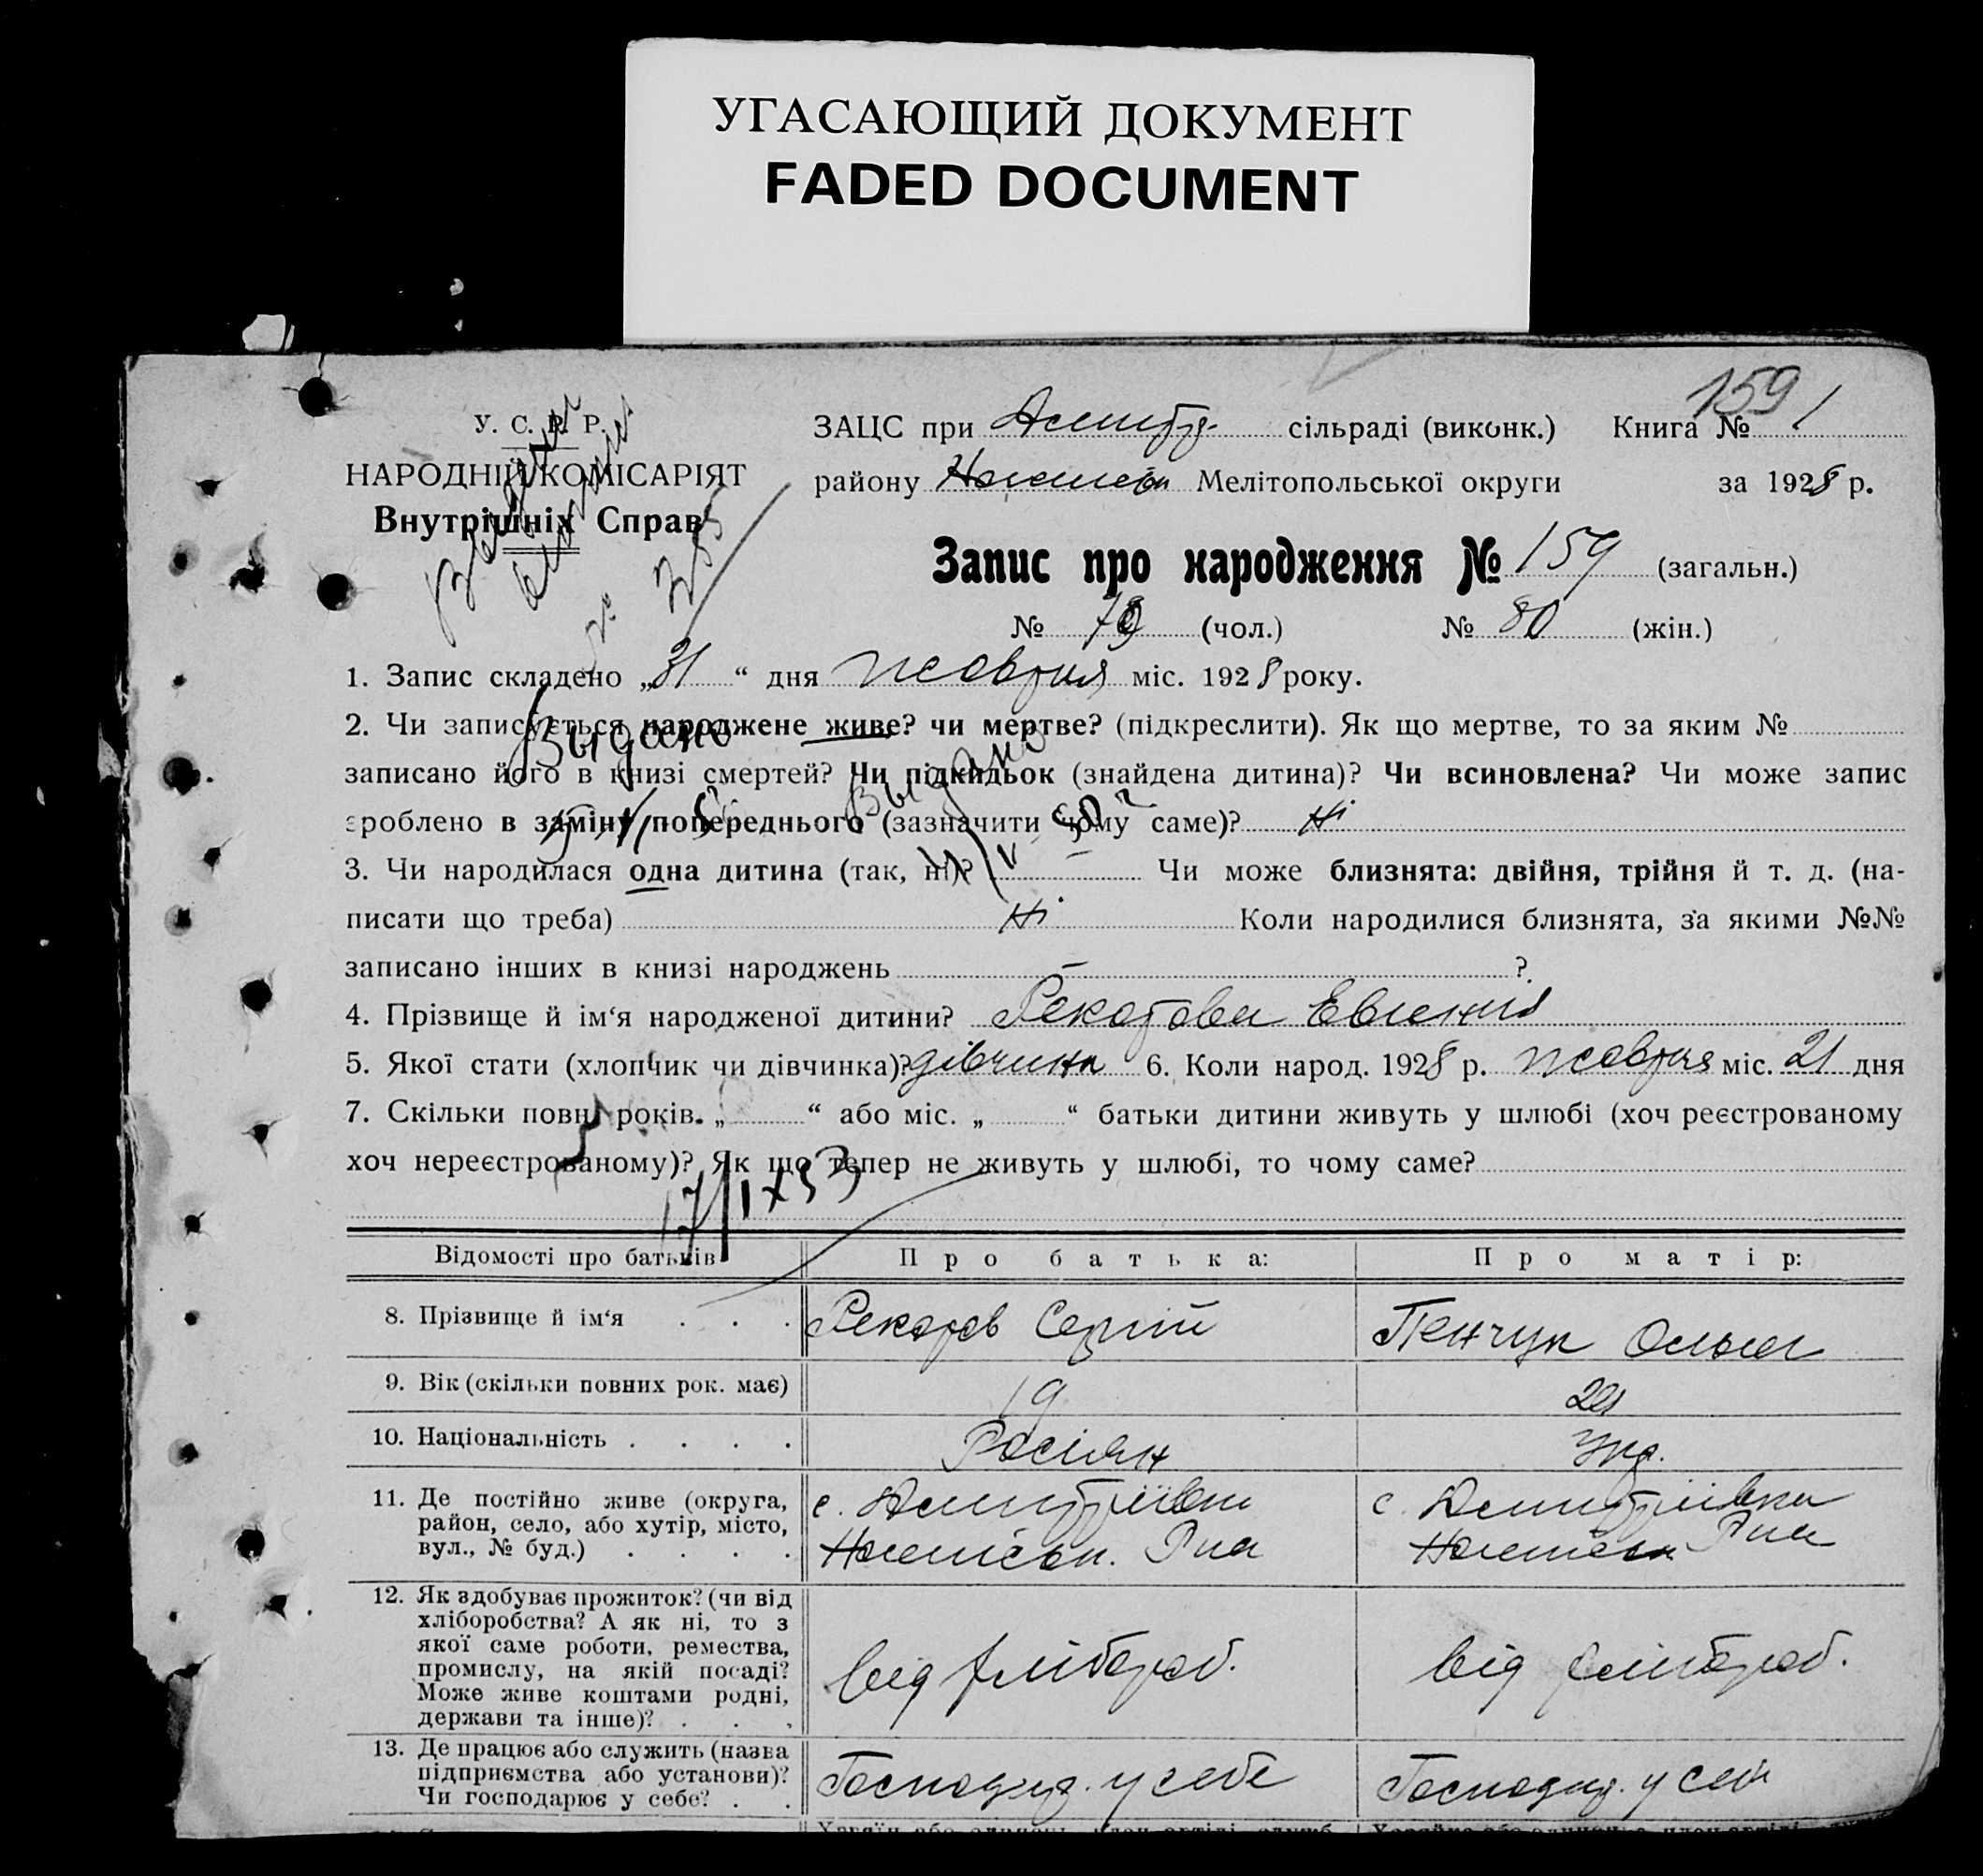 УГАСАЮЩИЙ ДОКУМЕНТ
FADED DOCUMENT
159
У. С. Р. Р.
НАРОДНІЙ КОМІСАРІЯТ
Внутрішніх Справ
ЗАЦС при сільраді (виконк.) Книга № 1
району Мелітопольської округи за 1928 р.
Запис про народження № 159 (загальн.)
№ 79 (чол.) № 80 (жін.)
1. Запис складено „31“ дня жовтня міс. 1928 року.
2. Чи записується народжене живе? чи мертве? (підкреслити). Як що мертве, то за яким №
записано його в книзі смертей? Чи підкидьок (знайдена дитина)? Чи всиновлена? Чи може запис
зроблено в заміну попереднього (зазначити чому саме)? Ні
Выдано
Выдано
3. Чи народилася одна дитина (так, ні)? — Чи може близнята: двійня, трійня й т. д. (на-
писати що треба) Ні Коли народилися близнята, за якими №№
записано інших в книзі народжень — ?
4. Прізвище й ім‘я народженої дитини? Євгенія
5. Якої стати (хлопчик чи дівчинка)? дівчинка 6. Коли народ. 1928 р. жовтня міс. 21 дня
7. Скільки повн. років. „ “ або міс. „ “ батьки дитини живуть у шлюбі (хоч реєстрованому
хоч нереєстрованому)? Як що тепер не живуть у шлюбі, то чому саме?
17/IX 53
Відомості про батьків Про батька: Про матір:
8. Прізвище й ім‘я . . . Сергій Пенчук Ольга
9. Вік (скільки повних рок. має) 19
10. Національність . . . . Росіян Укр.
11. Де постійно живе (округа,
район, село, або хутір, місто,
вул., № буд.) . . . .
с. Дмитрівка
с. Дмитрівка
12. Як здобуває прожиток? (чи від
хліборобства? А як ні, то з
якої саме роботи, ремества,
промислу, на якій посаді?
Може живе коштами родні,
держави та інше)? . . .
від хлібороб.
від хлібороб.
13. Де працює або служить (назва
підприємства або установи)?
Чи господарює у себе? . .
Господар. у себе
Господар. у себе